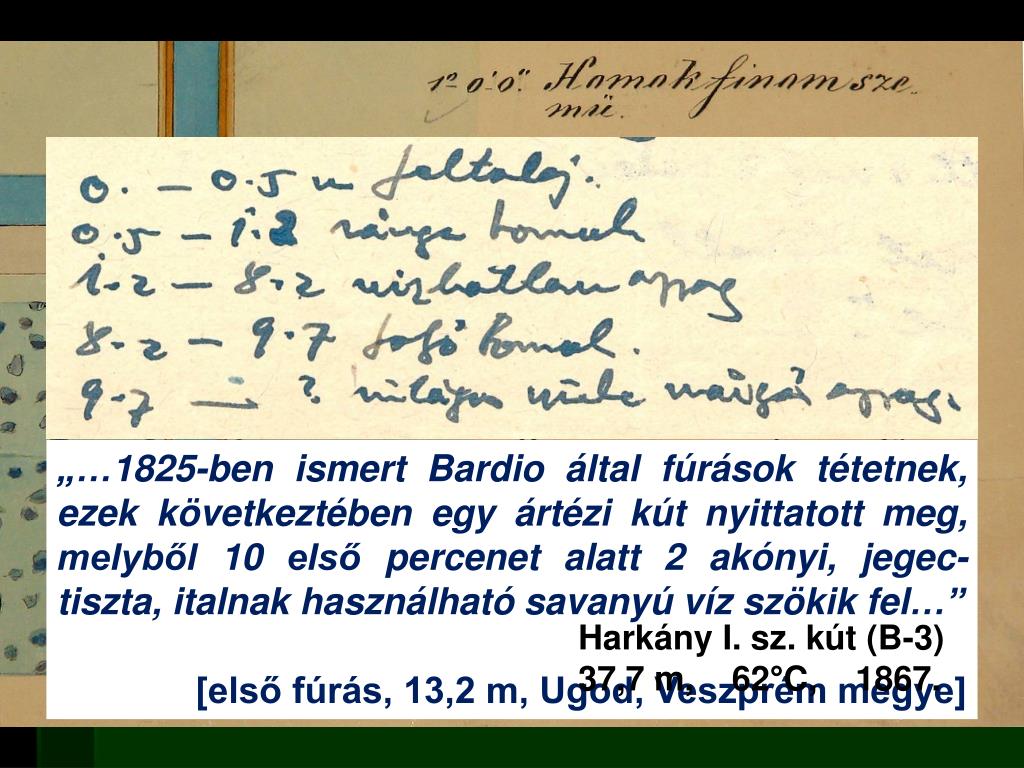 1º 0' 0". Homok finom sze
mü.
0. – 0.5 m feltalaj.
0.5 – 1.2 sárga homok
1.2 – 8.2 vizhatlan agyag
8.2 – 9.7 homok.
9.7 – ? világos agyag.
„…1825-ben ismert Bardio által fúrások tétetnek,
ezek következtében egy ártézi kút nyittatott meg,
melyből 10 első percenet alatt 2 akónyi, jegec-
tiszta, italnak használható savanyú víz szökik fel…”
Harkány I. sz. kút (B-3)
37,7 m, 62°C, 1867.
[első fúrás, 13,2 m, Ugod, Veszprém megye]